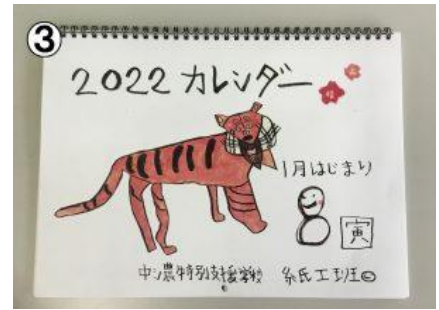 ③
2022 カレンダー
1月はじまり
寅
中濃特別支援学校 紙工班